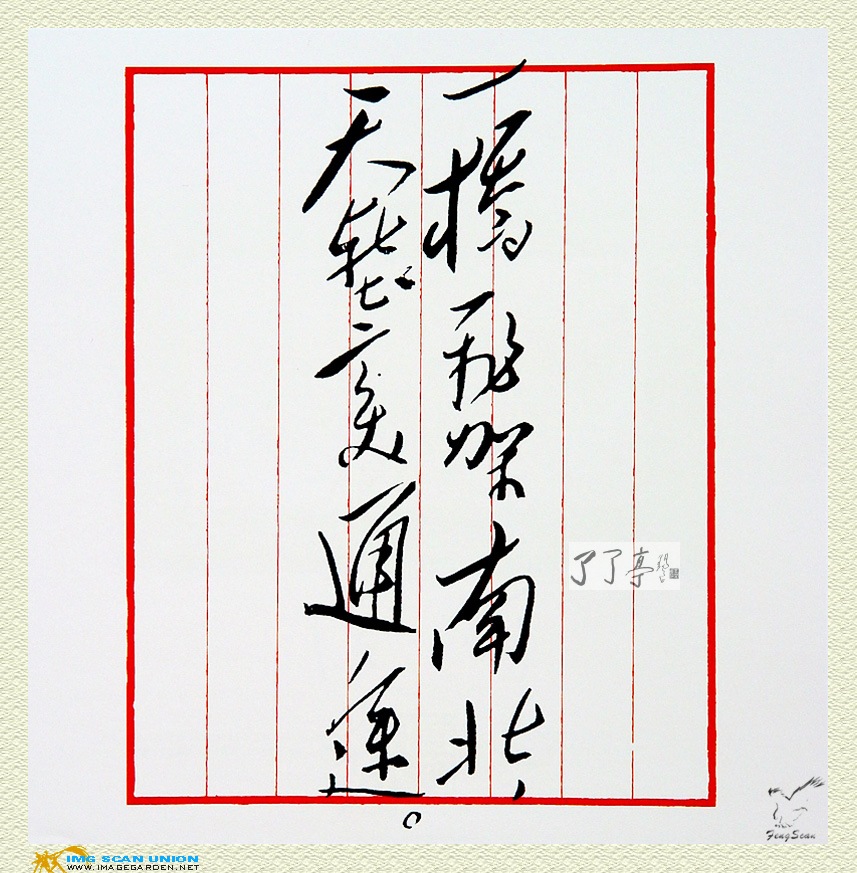 一橋飛架南北，
天塹变通途。
了了亭
FengScan
IMG SCAN UNION
WWW.IMAGEGARDEN.NET